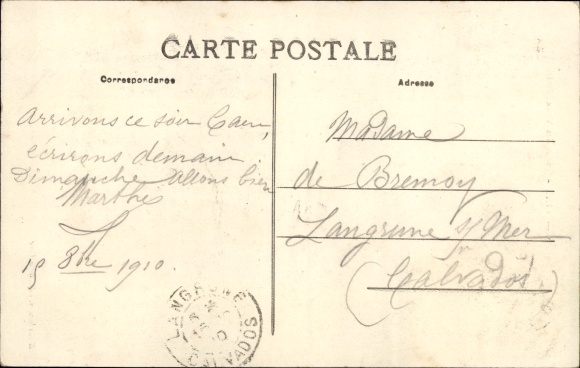 CARTE POSTALE
Correspondance
Adresse
Arrivons ce soir Caen,
écrirons demain
Dimanche Allons bien
Marthe
15 8bre 1910.
Madame
de Bremoy
Langrune s/Mer
(Calvados)
LANGRUNE
CALVADOS